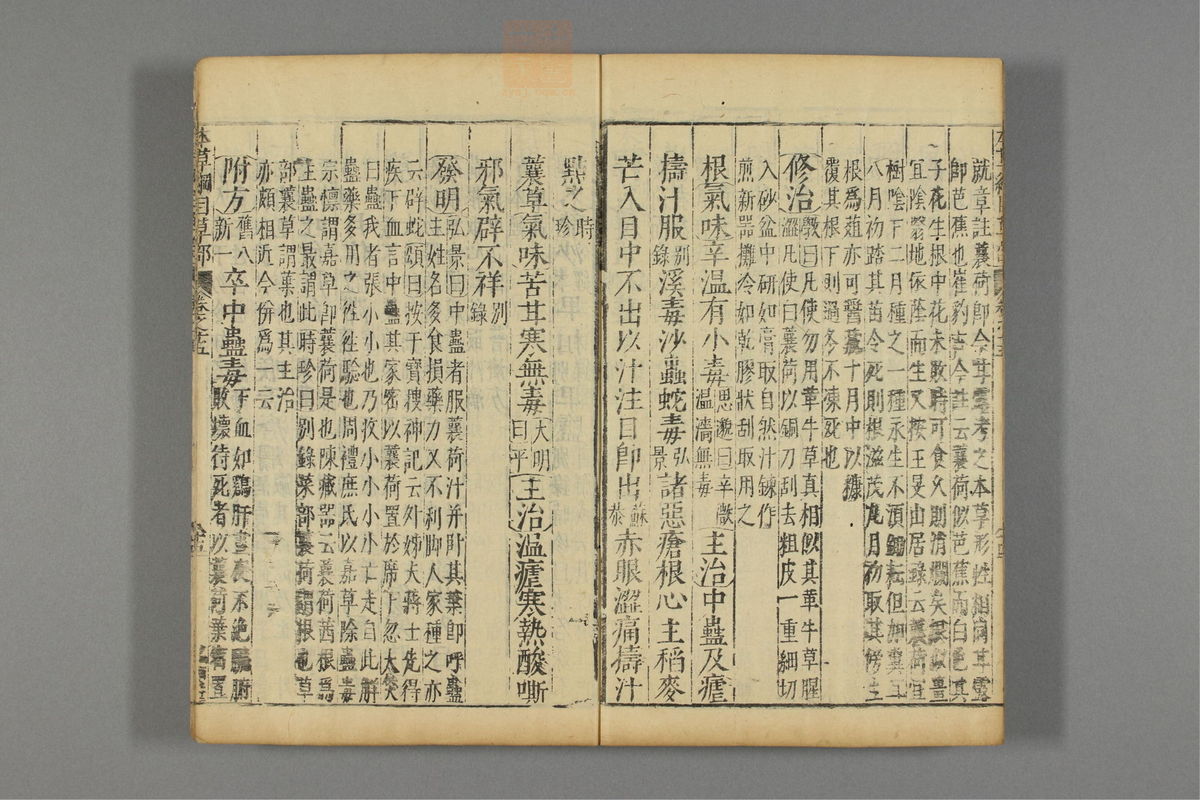 就章註蘘荷即今甘露考之本草形性相同甘露
即芭蕉也崔豹古今註云蘘荷似芭蕉而白色其
子花生根中花未敗時可食久則消爛矣根似薑
宜陰翳地依蔭而生又按王旻山居錄云蘘荷宜
樹陰下二月種之一種永生不須鋤耘但加糞耳
八月初踏其苗令死則根滋茂九月初取其傍生
根為菹亦可醬藏十月中以糠
覆其根下則過冬不凍死也
修治斅曰凡使勿用革牛草真相似其革牛草腥
澀凡使白蘘荷以銅刀刮去粗皮一重細切
入砂盆中研如膏取自然汁鍊作
煎新器攤冷如乾膠狀刮取用之
根氣味辛溫有小毒思邈曰辛微溫濇無毒主治中蠱及瘧
擣汁服別錄溪毒沙蝨蛇毒弘景諸惡瘡根心主稻麥
芒入目中不出以汁注目即出蘇恭赤眼澀痛擣汁
點之時珍
蘘草氣味苦甘寒無毒大明曰平主治溫瘧寒熱酸嘶
邪氣辟不祥別錄
發明弘景曰中蠱者服蘘荷汁并臥其葉即呼蠱
主姓名多食損藥力又不利脚人家種之亦
云辟蛇頌曰按干寶搜神記云外姊夫蔣士先得
疾下血言中蠱其家密以蘘荷置於席下忽大笑
曰蠱我者張小小也乃收小小小亡走自此解
蠱藥多用之往往驗也周禮庶氏以嘉草除蠱毒
宗懔謂嘉草即蘘荷是也陳藏器云蘘荷茜根為
主蠱之最謂此時珍曰別錄菜部蘘荷謂根也草
部蘘草謂葉也其主治
亦頗相近今併為一云
附方舊八新一卒中蠱毒下血如鷄肝晝夜不絶臟腑
敗壞待死者以蘘荷葉密置
本草綱目草部 卷之十五